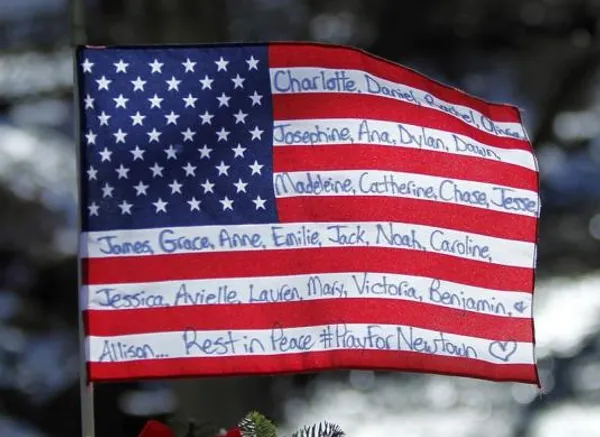 Charlotte, Daniel, Rachel, Olivia,
Josephine, Ana, Dylan, Dawn,
Madeleine, Catherine, Chase, Jesse,
James, Grace, Anne, Emilie, Jack, Noah, Caroline,
Jessica, Avielle, Lauren, Mary, Victoria, Benjamin, &
Allison... Rest in Peace #PrayForNewtown ♡